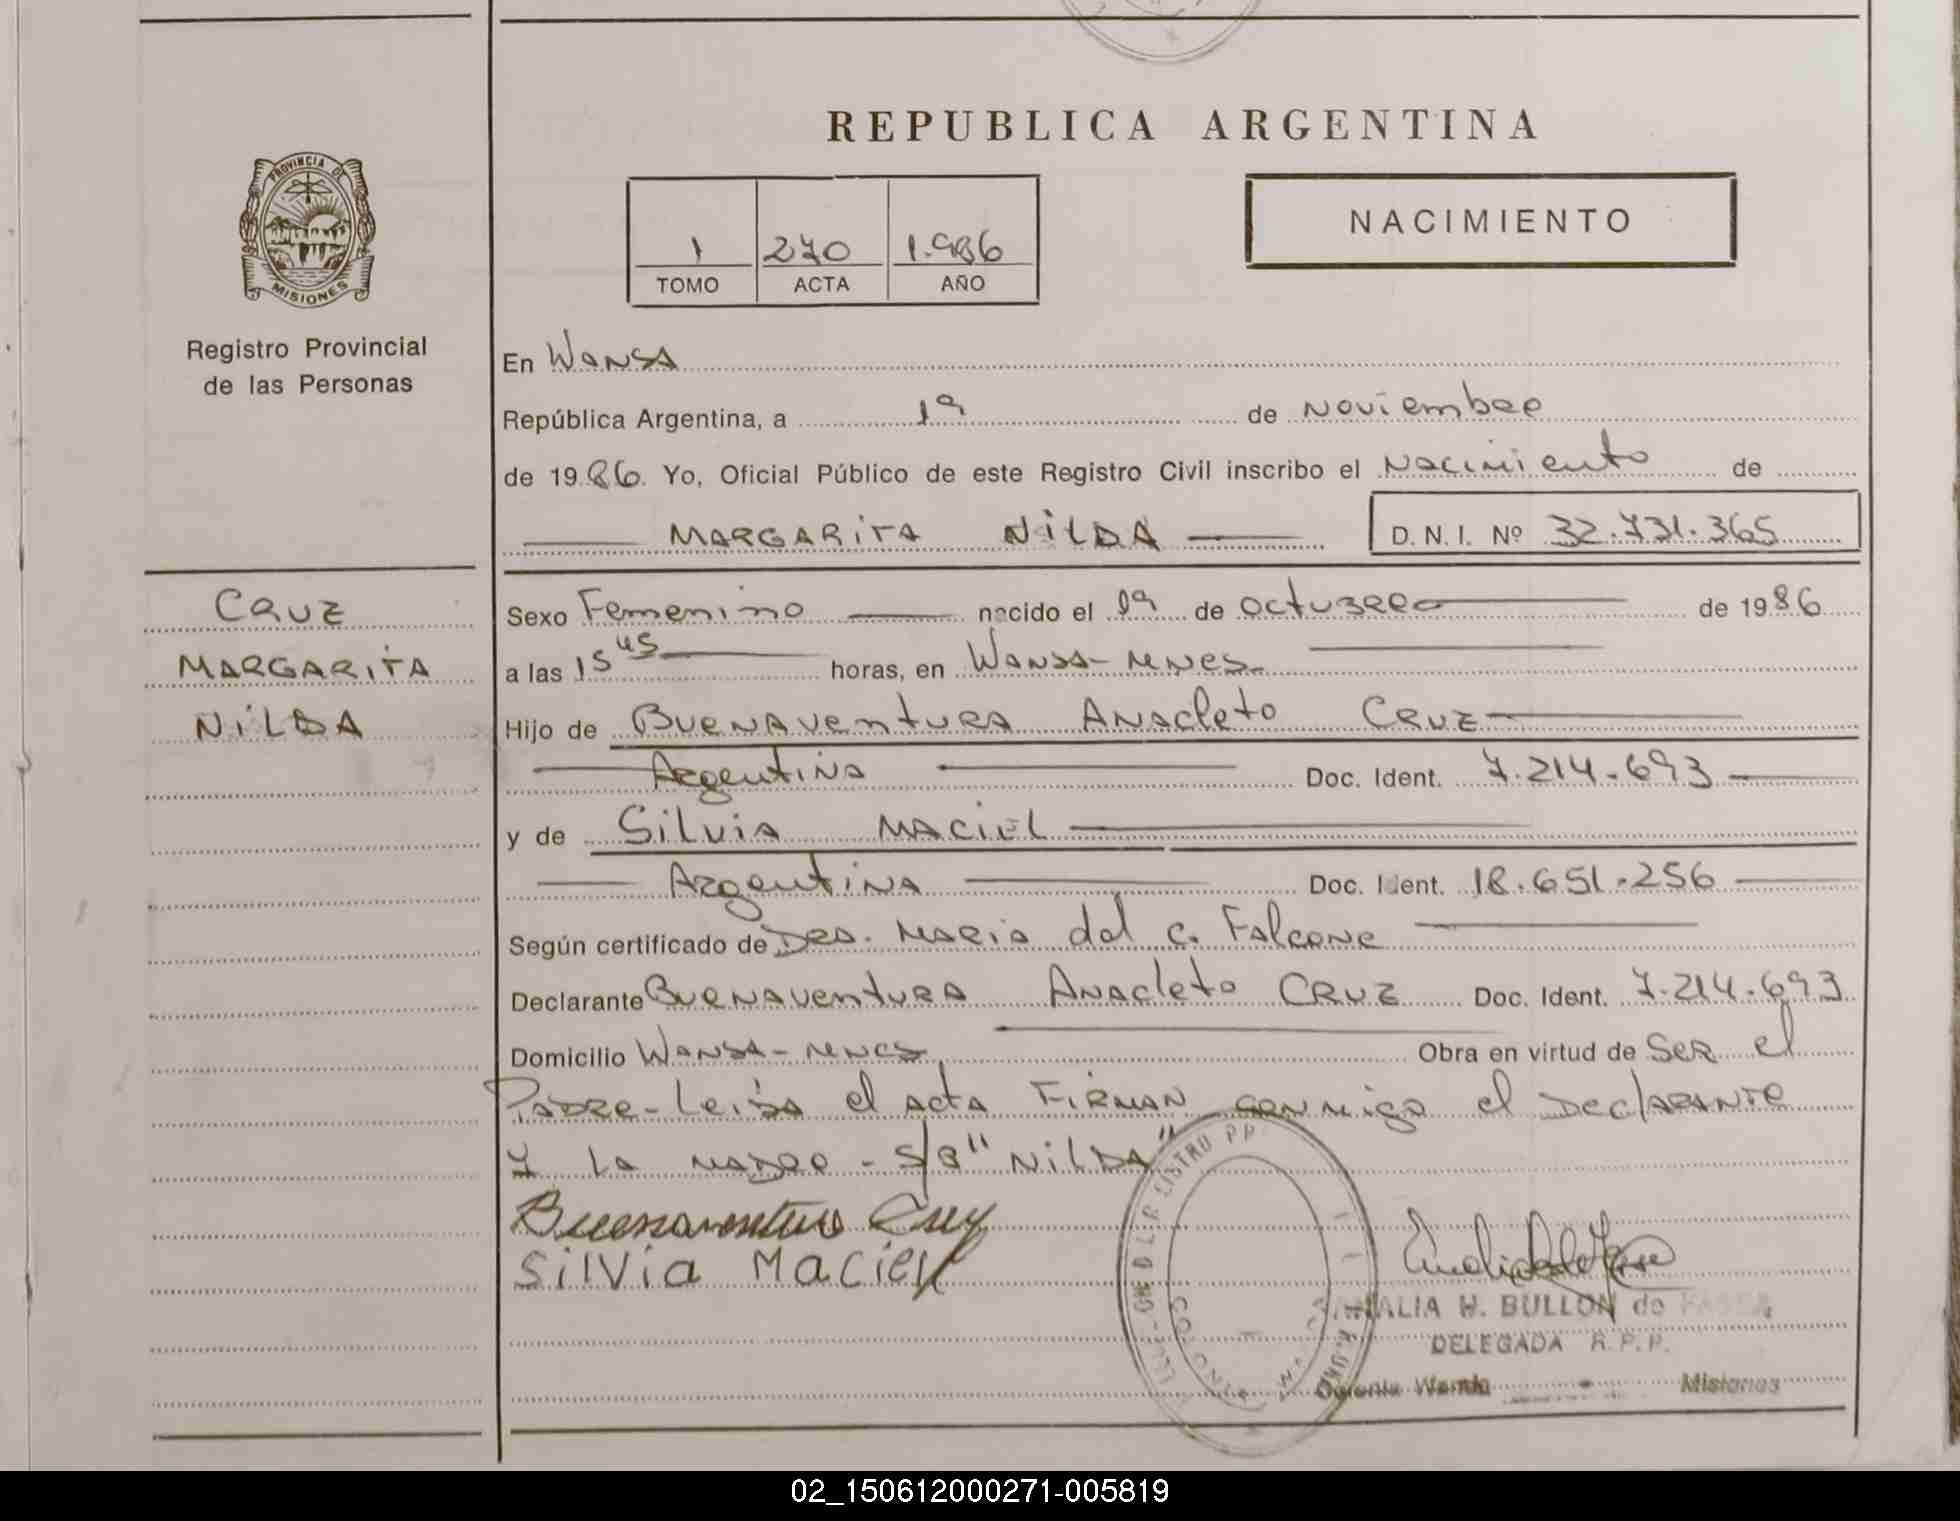 REPUBLICA ARGENTINA
PROVINCIA DE
MISIONES
Registro Provincial
de las Personas
1 270 1.986
TOMO ACTA AÑO
NACIMIENTO
En WANDA
República Argentina, a 19 de Noviembre
de 1986. Yo, Oficial Público de este Registro Civil inscribo el Nacimiento de
MARGARITA NILDA D.N.I. Nº 32.731.365
CRUZ
MARGARITA
NILDA
Sexo Femenino nacido el 19 de octubre de 1986
a las 15 45 horas, en Wanda - Mnes.
Hijo de BUENAVENTURA ANACLETO CRUZ
Argentina Doc. Ident. 7.214.693
y de SILVIA MACIEL
Argentina Doc. Ident. 18.651.256
Según certificado de Dra. Maria del C. Falcone
Declarante BUENAVENTURA ANACLETO CRUZ Doc. Ident. 7.214.693
Domicilio Wanda - Mnes. Obra en virtud de Ser el
Padre - Leida el acta Firman conmigo el Declarante
y la Madre - S/B "NILDA"
Buenaventura Cruz
Silvia Maciel
AMALIA H. BULLON de
DELEGADA R.P.P.
Colonia Wanda Misiones
02_150612000271-005819